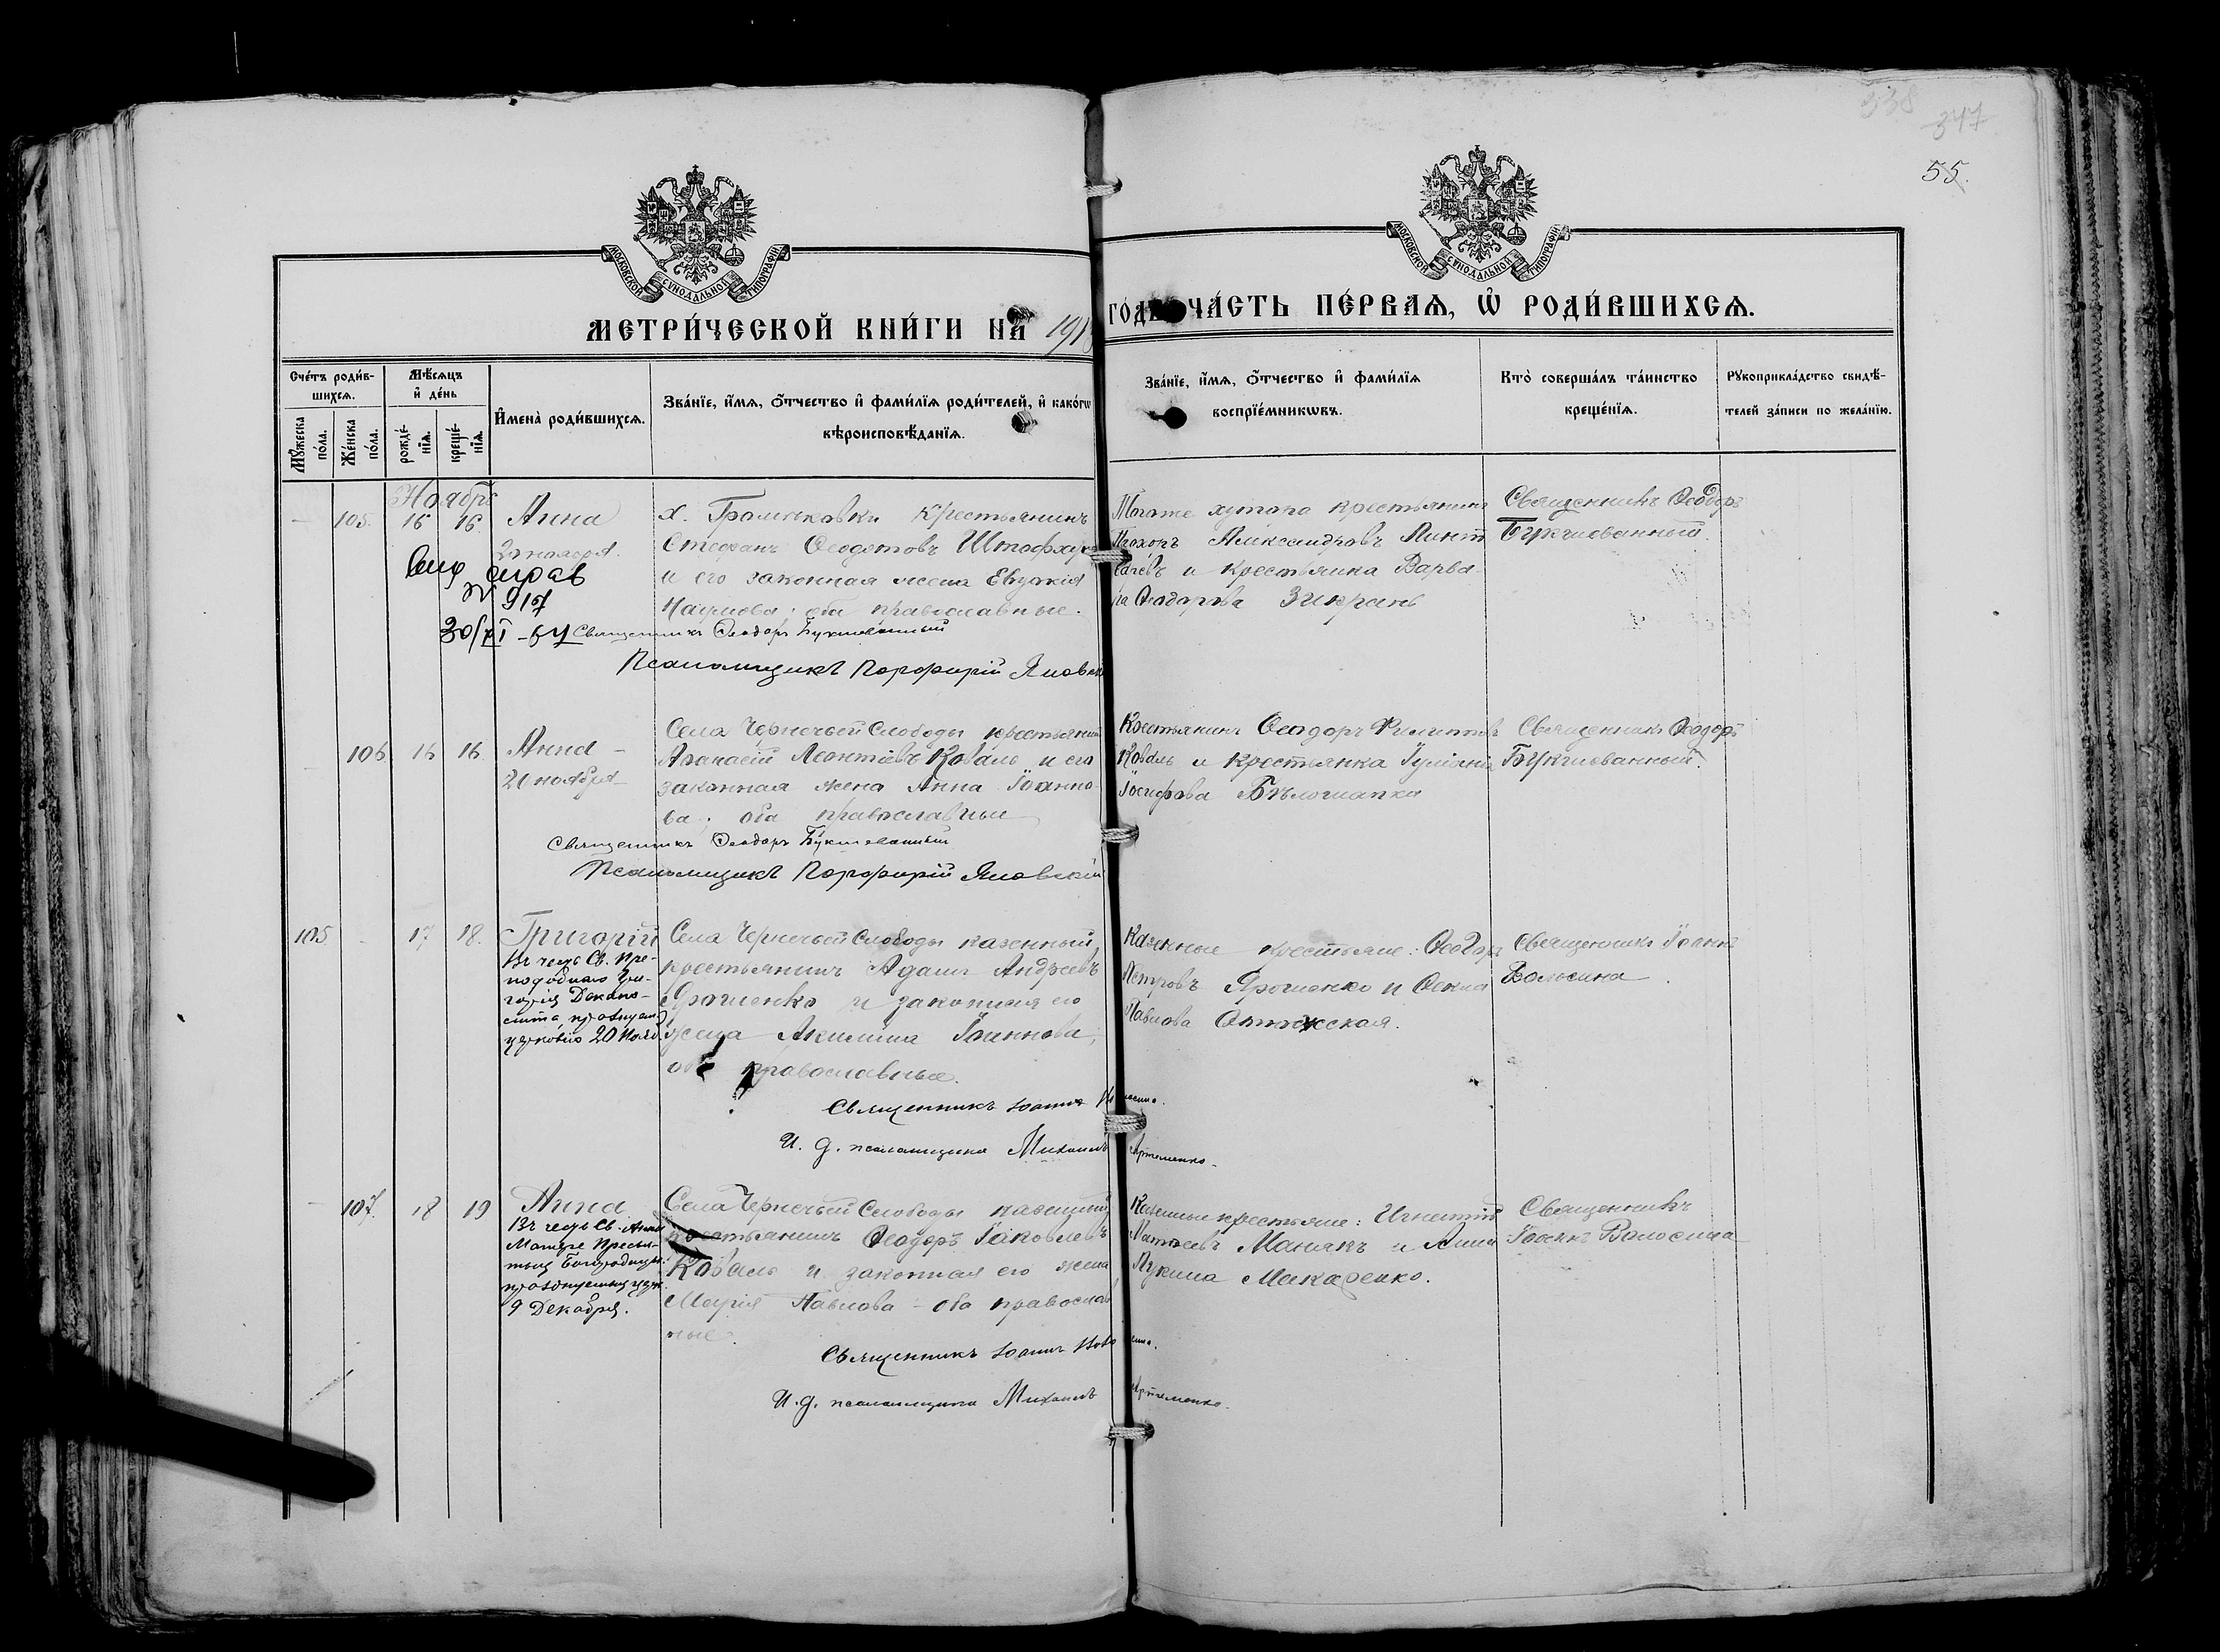 338
347
55.
МОСКОВСКОЙ СѴНОДАЛЬНОЙ ТИПОГРАФІИ
МОСКОВСКОЙ СѴНОДАЛЬНОЙ ТИПОГРАФІИ
МЕТРИ́ЧЕСКОЙ КНИ́ГИ НА 191
ГО́ДЪ ЧА́СТЬ ПЕ́РВАѦ, Ѡ҆ РОДИ́ВШИХСѦ.
Сче́тъ роди́в-
шихсѧ.
Мꙋ́жеска по́ла.
Же́нска по́ла.
Мѣ́сѧцъ и҆ де́нь
рожде́-нїѧ.
креще́-нїѧ.
И҆мена̀ роди́вшихсѧ.
Зва́нїе, и҆́мѧ, ѻ҆́тчество и҆ фами́лїѧ роди́телей, и҆ како́гѡ
вѣроисповѣ́данїѧ.
Зва́нїе, и҆́мѧ, ѻ҆́тчество и҆ фами́лїѧ
воспрїе́мникѡвъ.
Кто̀ соверша́лъ та́инство
креще́нїѧ.
Рꙋкоприкла́дство свидѣ́-
телей за́писи по жела́нїю.
Ноябрь
105. 16 16 Анна
20 ноября.
917
х. Крестьянинъ
Стефанъ Ѳеодотовъ
и его законная жена Евдокія
Наумова; оба православные.
Священникъ Ѳеодоръ Букшованный
Псаломщикъ Порфирій Яновск
Тогоже хутора крестьянинъ
Прохоръ Александровъ
и крестьянка Варва-
ра Ѳеодорова
Священникъ Ѳеодоръ
Букшованный.
106 16 16 Анна
20 ноября
Села Чернечьей Слободы крестьянинъ
Аѳанасій Леонтіевъ Коваль и его
законная жена Анна Іоанно-
ва; оба православные
Священникъ Ѳеодоръ Букшованный
Псаломщикъ Порфирій Яновскій
Крестьянинъ Ѳеодоръ Филиппов
Коваль и крестьянка Іуліанія
Іосифова Бѣлошапка
Священникъ Ѳеодоръ
Букшованный.
105 17 18. Григорій
Въ честь Св. Пре-
подобнаго Гри-
горія Декапо-
лита, празднуем.
церковію 20 Нояб.
Села Чернечьей Слободы казенный
крестьянинъ Адамъ Андреевъ
Ярошенко и законная его
жена Акилина Іоаннова,
оба православные.
Священникъ Іоаннъ Волосина.
И. д. псаломщика Михаилъ Артеменко.
Казенные крестьяне: Ѳеодоръ
Петровъ Ярошенко и Ѳекла
Павлова
Священникъ Іоаннъ
Волосина.
107. 18 19 Анна
Въ честь Св. Анны
Матере Пресвя-
тыя Богородицы:
празднуемыя церк.
9 Декабря.
Села Чернечьей Слободы казенный
крестьянинъ Ѳеодоръ Іаковлевъ
Коваль и законная его жена
Марія Павлова - оба православ
ные.
Священникъ Іоаннъ Волосина.
И. д. псаломщика Михаилъ Артеменко.
Казенные крестьяне: Игнатій
Матѳеевъ Манякъ и Анна
Лукина Макаренко.
Священникъ
Іоаннъ Волосина